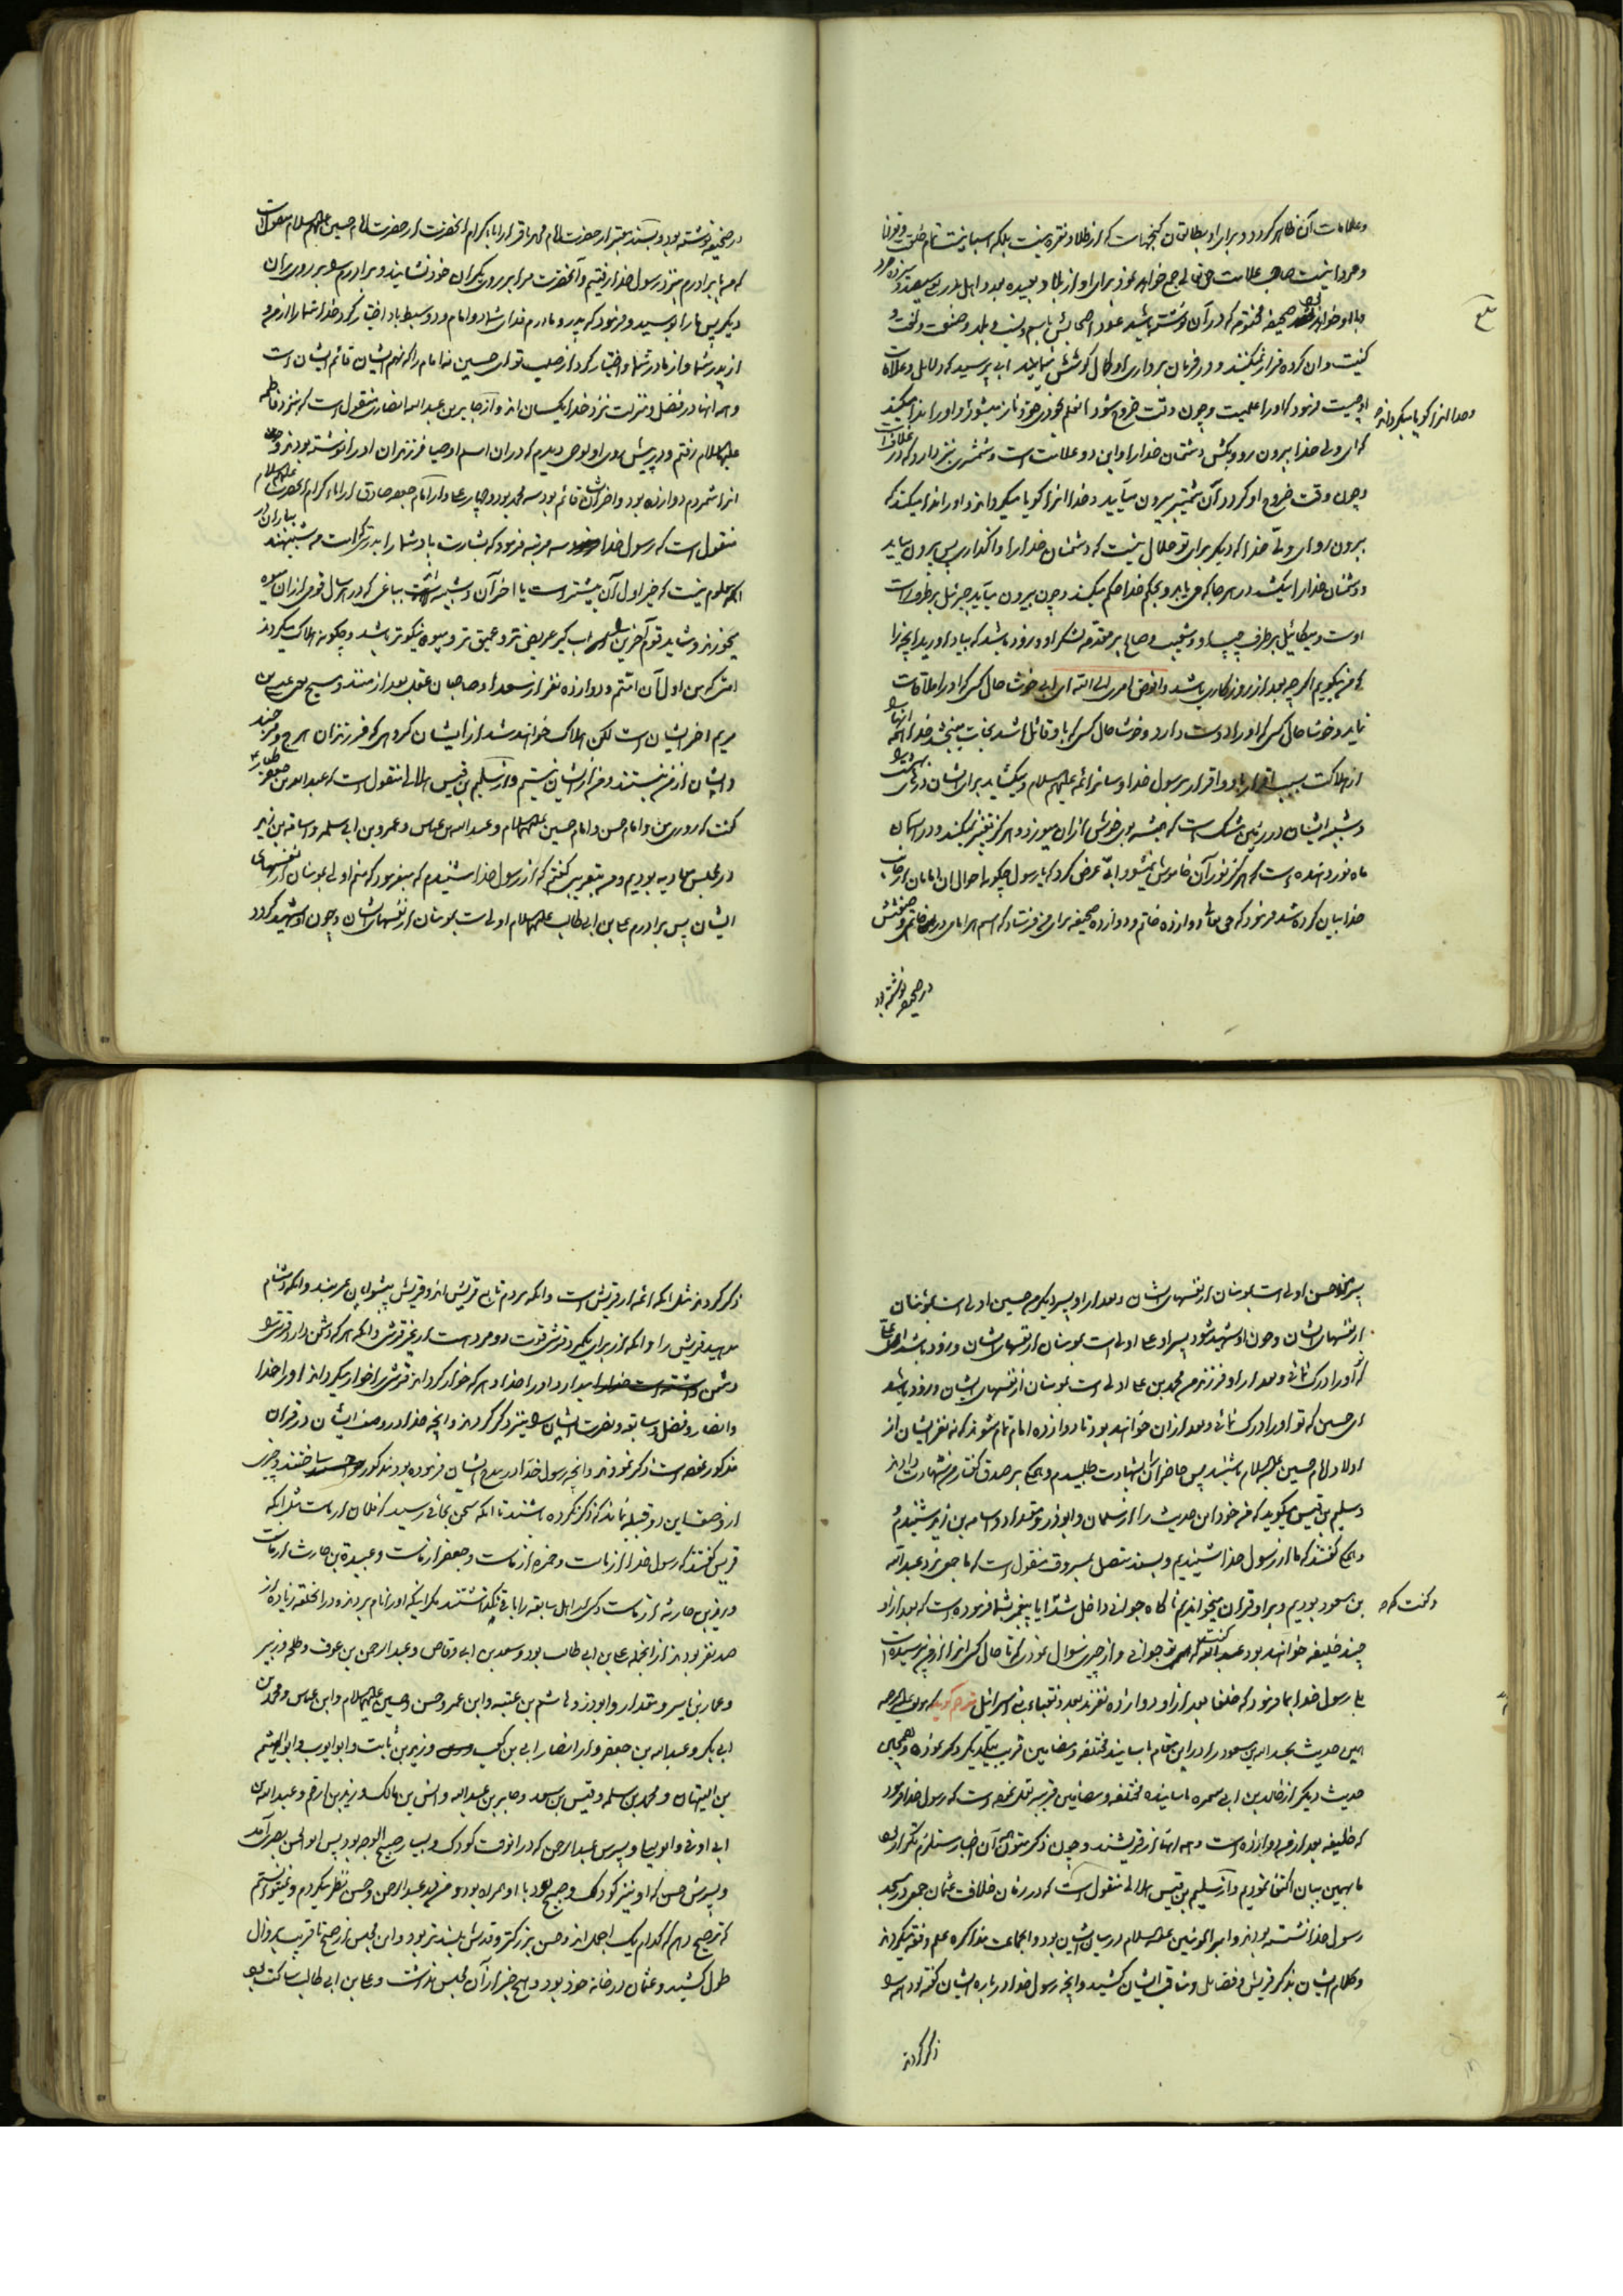 وعلامات آن ظاهر گردد و برای او بطالقان گنجهاست که از طلا و نقره نیست بلکه اسبانیست تمام خلقت و قوت
و مردانیست صاحب علامت حق تعالی جمع خواهد نمود برای او از بلاد بعیده بعدد اهل بدر سیصد و سیزده مرد
و با او خواهد بود صحیفه مختومه که در آن نوشته باشد عدد اصحابش باسم و نسب و بلد و صنعت و لغت و
کنیت و ان کرده فرار نمیکنند و در فرمان برداری او کمال کوشش نمایند ابی پرسید که دلایل و علامات
او چیست فرمود که او را علمیست و چون وقت خروج شود آن علم بخودی خود باز میشود و او را ندا میکند
وخدا انرا گویا میگرداند
که ای ولی خدا بیرون رو و بکش دشمنان خدا را و این دو علامت است و شمشیری نیز دارد که در غلافست
و چون وقت خروج او گردد آن شمشیر بیرون میآید و خدا انرا گویا میگرداند و او را ندا میکند که
بیرون رو ای ولی خدا که دیگر برای تو حلال نیست که دشمنان خدا را واگذاری پس بیرون میاید
و دشمنان خدا را میکشد در هر جا که می یابد و بحکم خدا حکم میکند و چون بیرون میآید جبرئیل بر طرف راست
اوست و میکائیل بر طرف چپ او و شعیب و صالح بر مقدمه لشکر او و زود باشد که بیاد اورید انچه را
که من میگویم اگر چه بعد از روزگاری باشد و افوض امری الی الله ای ابی خوشا حال کسی که او را ملاقات
نماید و خوشا حال کسی که او را دوست دارد و خوشا حال کسی که باو قائل باشد نجات میبخشد خدا انها را
از هلاکت بسبب اقرار باو و اقرار برسول خدا و سایر ائمه علیهم السلام و میگشاید برای ایشان درهای بهشت را
و شبیه ایشان در زمین مشک است که همیشه بوی خوش از ان میوزد و هرگز تغییر نمیکند و در آسمان
ماه نور دهنده است که هرگز نور آن خاموش نمیشود ابی عرض کرد که یا رسول چگونه احوال ان امامان از جانب
خدا بیان کرده شد فرمود که حق تعالی دوازده خاتم و دوازده صحیفه برای من فرستاد که اسم هر امامی در خاتم و صفتش
در صحیفه نوشته بود
در صحیفه نوشته بود و بسند معتبر از حضرت امام محمد باقر از اباء کرام انحضرت از حضرت امام حسین علیهم السلام منقول است
که من با برادرم بنزد رسول خدا رفتیم و آنحضرت مرا بر روی یک ران خود نشانید و برادرم را بر روی ران
دیگر پس ما را بوسید و فرمود که پدر و مادرم فدای شما دو امام و دو سبط باد اختیار کرد خدا شما را از من و
از پدر شما و از مادر شما و اختیار کرد از صلب تو ای حسین نه امام را که نهم ایشان قائم ایشان است
و همه انها در فضل و منزلت نزد خدا یکسان اند و از جابر بن عبد الله انصاری منقول است که بنزد فاطمه
علیها السلام رفتم و در پیش روی او لوحی دیدم که در ان اسم اوصیا فرزندان او را نوشته بودند و چون
انرا شمردم دوازده بود و اخر ایشان قائم بود سه محمد بود و چهار علی و از امام جعفر صادق از اباء کرام انحضرت علیهم السلام
منقول است که رسول خدا سه مرتبه فرمود که بشارت باد شما را بدرستیکه امت من شبیه اند بباران که
معلوم نیست که خیر اول آن بیشتر است یا اخر آن و شبیه است بباغی که در هر سال قومی از ان میوه
بخورند و شاید قوم آخرین را اب گیر عریض تر و عمیق تر و میوه نیکوتر باشد و چگونه هلاک میگردند
امتی که من اول آن امتم و دوازده نفر از سعدا و صاحبان عقل بعد از منند و مسیح یعنی عیسی بن
مریم اخر ایشان است لکن هلاک خواهند شد از ایشان گروهی که فرزندان هرج و مرجند
و ایشان از من نیستند و من از ایشان نیستم و از سلیم بن قیس هلالی منقول است که عبد الله بن جعفر طیار
گفت که روزی من و امام حسن و امام حسین علیهما السلام و عبد الله بن عباس و عمرو بن ابی سلمه و اسامه بن زید
در مجلس معاویه بودیم و من بتقریبی گفتم که از رسول خدا شنیدم که میفرمود که منم اولی بمومنان از نفسهای
ایشان پس برادرم علی بن ابی طالب علیهما السلام اولی است بمومنان از نفسهای ایشان و چون او شهید گردد
پسرم حسن اولی است بمومنان از نفسهای ایشان و بعد از او پسر دیگرم حسین اولی است بمؤمنان
از نفسهای ایشان و چون او شهید شود پسر او علی اولی است بمومنان از نفسهای ایشان و زود باشد ای علی
که او را درک نمائی و بعد از او فرزندم محمد بن علی اولی است بمومنان از نفسهای ایشان و زود باشد
ای حسین که تو او را درک نمائی و بعد از ان خواهند بود تا دوازده امام تمام شوند که نه نفر ایشان از
اولاد امام حسین علیه السلام باشند پس حاضران را بشهادت طلبیدم و همگی بر صدق گفتار من شهادت دادند
و سلیم بن قیس میگوید که من خود این حدیث را از سلمان و ابو ذر و مقداد و اسامه بن زید شنیدم
و همگی گفتند که ما از رسول خدا شنیدیم و بسند متصل بمسروق منقول است که ما جمعی نزد عبد الله
بن مسعود بودیم و بر او قران میخواندیم ناگاه جوانی داخل شد و گفت که ایا پیغمبر شما فرموده است که بعد از او
چند خلیفه خواهند بود عبد الله گفت که تو جوانی و از چیزی سوال نمودی که تا حال کسی انرا از من نپرسیده است
بلی رسول خدا بما فرمود که خلفا بعد از او دوازده نفرند بعدد نقباء بنی اسرائیل مترجم گوید که مولف علیه الرحمه
همین حدیث عبد الله بن مسعود را در این مقام باسانید مختلفه و مضامین قریب بیکدیگر ذکر نموده و همچنین
حدیث دیگر از خالد بن ابی سمره باسانید مختلفه و مضامین قریبه نقل نموده است که رسول خدا فرمود
که خلیفه بعد از من دوازده است و همه انها از قریشند و چون ذکر متون همه آن اخبار مستلزم تکرار بود
ما بهمین بیان اکتفا نمودیم و از سلیم بن قیس هلالی منقول است که در زمان خلافت عثمان جمعی در مسجد
رسول خدا نشسته بودند و امیر المؤمنین علیه السلام در میان ایشان بود و انجماعت مذاکره علم و فقه میکردند
و کلام ایشان بذکر قریش و فضایل و مناقب ایشان کشید و انچه رسول خدا در باره ایشان گفته بود همه را
ذکر کردند
ذکر کردند مثل انکه ائمه از قریش است و انکه مردم تابع قریش اند و قریش پیشوایان عربند و انکه دشنام
مدهید قریش را و انکه از برای یکمرد قرشی قوت دو مرد است از غیر قرشی و انکه هر که دشمن دارد قریش را
دشمن دارد او را خدا و هر که خوار گرداند قریش را خوار میگرداند او را خدا
و انصار و فضل و سابقه و نصرت ایشان را نیز ذکر کردند و انچه خدا در وصف ایشان در قران
مذکور نموده است ذکر نمودند و انچه رسول خدا در مدح ایشان فرموده بود مذکور ساختند و چیزی
از وصف این دو قبیله نماند که ذکر نکرده باشند تا انکه سخن بجائی رسید که فلان از ماست مثل انکه
قریش گفتند که رسول خدا از ماست و حمزه از ماست و جعفر از ماست و عبیدة بن حارث از ماست
و زید بن حارثه از ماست و کسی از اهل سابقه را باقی نگذاشتند مگر اینکه او را نام بردند و در انحلقه زیاده از
صد نفر بودند از انجمله علی بن ابی طالب بود و سعد بن ابی وقاص و عبد الرحمن بن عوف و طلحه و زبیر
و عمار بن یاسر و مقداد و ابوذر و هاشم بن عتبه و ابن عمر و حسن و حسین علیهما السلام و ابن عباس و محمد بن
ابی بکر و عبد الله بن جعفر و از انصار ابی بن کعب و زید بن ثابت و ابو ایوب و ابو الهیثم
بن التیهان و محمد بن سلمه و قیس بن سعد و جابر بن عبد الله و انس بن مالک و زید بن ارقم و عبد الله بن
ابی اوفی و ابو لیلی و پسرش عبد الرحمن که در انوقت کودک و بسیار صبیح الوجه بود پس ابو الحسن بصری آمد
و پسرش حسن که او نیز کودک و صبیح بود با او همراه بود و من بعبد الرحمن و حسن نظر میکردم و نمیتوانستم
که ترجیح دهم که کدام یک اجمل اند و حسن بزرگتر و قدش بلند تر بود و این مجلس از صبح تا قریب بزوال
طول کشید و عثمان در خانه خود بود و هیچ خبر از آن مجلس نداشت و علی بن ابی طالب ساکت بود